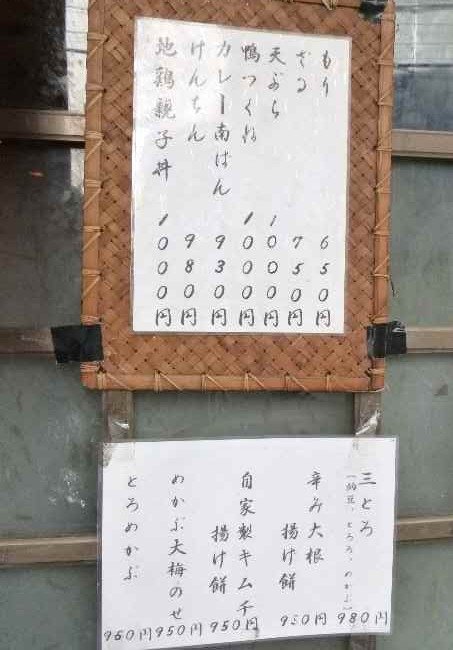 もり 650円
ざる 750円
天ぷら 1000円
鴨つくね 1000円
カレー南ばん 930円
けんちん 980円
地鶏親子丼 1000円
三とろ
(納豆、とろろ、めかぶ) 980円
辛み大根
揚げ餅 950円
自家製キムチ
揚げ餅 950円
めかぶ大梅のせ 950円
とろめかぶ 950円